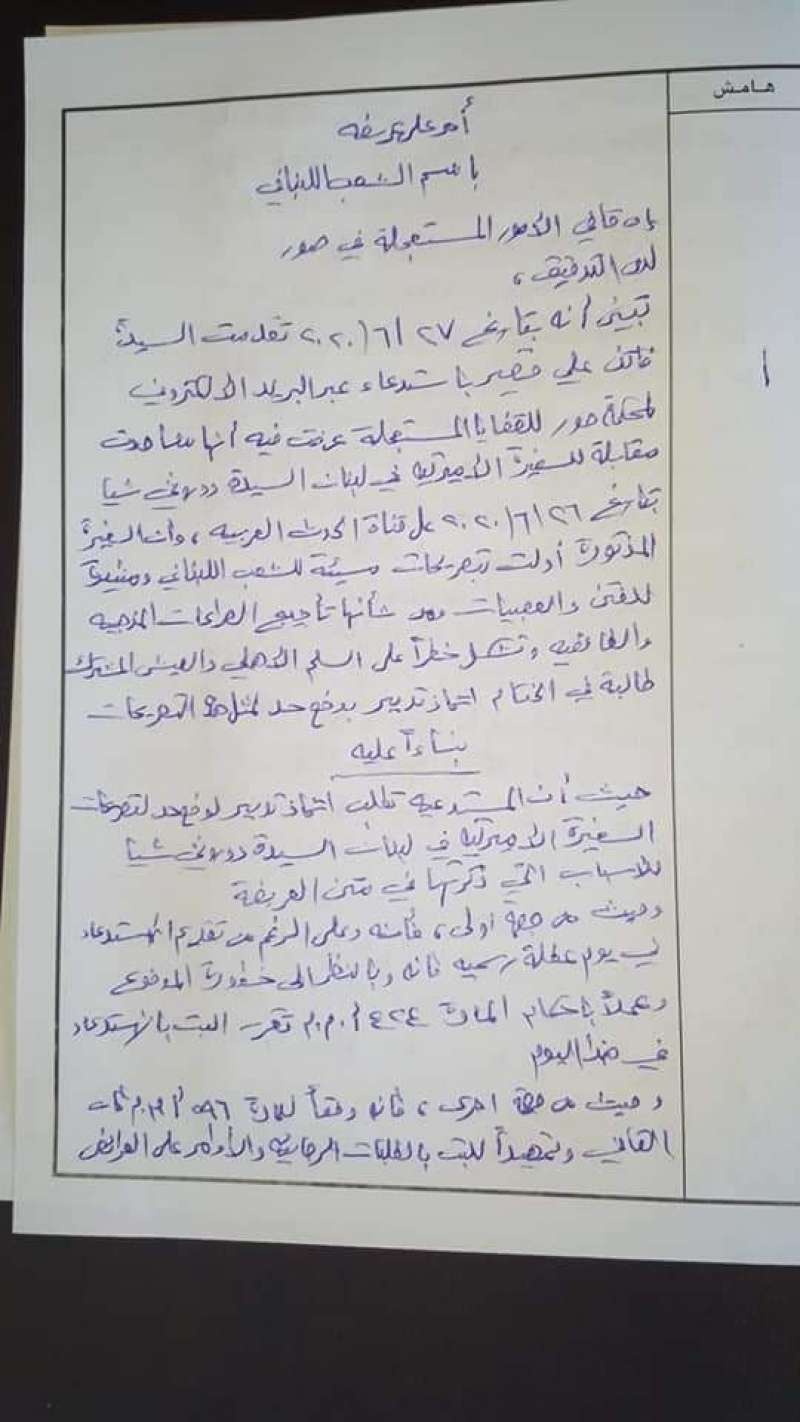 هامش
أمر على عريضة
باسم الشعب اللبناني
إن قاضي الأمور المستعجلة في صور
لدى التدقيق،
تبين أنه بتاريخ ٢٧/٦/٢٠٢٠ تقدمت السيدة
فاتن علي قصير باستدعاء عبر البريد الالكتروني
لمحكمة صور للقضايا المستعجلة عرضت فيه أنها شاهدت
مقابلة للسفيرة الأميركية في لبنان السيدة دوروثي شيا
بتاريخ ٢٦/٦/٢٠٢٠ على قناة الحدث العربية، وأن السفيرة
المذكورة أدلت بتصريحات مسيئة للشعب اللبناني ومثيرة
للفتن والعصبيات ومن شأنها تأجيج الصراعات المذهبية
والطائفية وتشكل خطراً على السلم الأهلي والعيش المشترك
طالبة في الختام اتخاذ تدبير بوضع حد لمثل هذه التصريحات
بناءاً عليه
حيث أن المستدعية تطلب اتخاذ تدبير لوضع حد لتصريحات
السفيرة الأميركية في لبنان السيدة دوروثي شيا
للأسباب التي ذكرتها في متن العريضة
وحيث من جهة أولى، فأنه وعلى الرغم من تقديم الاستدعاء
في يوم عطلة رسمية فانه وبالنظر الى خطورة الموضوع
وعملاً بأحكام المادة ٤٢٤/أ.م.م تقرر البت بالاستدعاء
في هذا اليوم
وحيث من جهة اخرى، فانه وفقاً للمادة ٥٩٦/أ.م.م فان
القاضي وتمهيداً للبت بالطلبات الرجائية والأوامر على العرائض